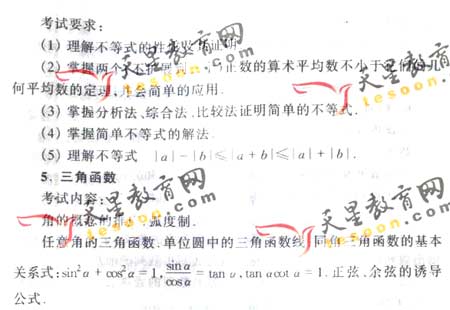 考试要求:
(1) 理解不等式的性质及其证明
(2) 掌握两个(不扩展到 正数的算术平均数不小于它们的几
何平均数的定理,并会简单的应用.
(3) 掌握分析法、综合法、比较法证明简单的不等式.
(4) 掌握简单不等式的解法.
(5) 理解不等式 |a|-|b|≤|a+b|≤|a|+|b|.
5. 三角函数
考试内容:
角的概念的推广.弧度制.
任意角的三角函数.单位圆中的三角函数线.同角三角函数的基本
关系式:sin²α+cos²α=1,sinα/cosα=tanα,tanαcotα=1.正弦、余弦的诱导
公式.
天星教育网
tesoon.com
天星教育网
tesoon.com
天星教育网
tesoon.com
天星教育网
tesoon.com